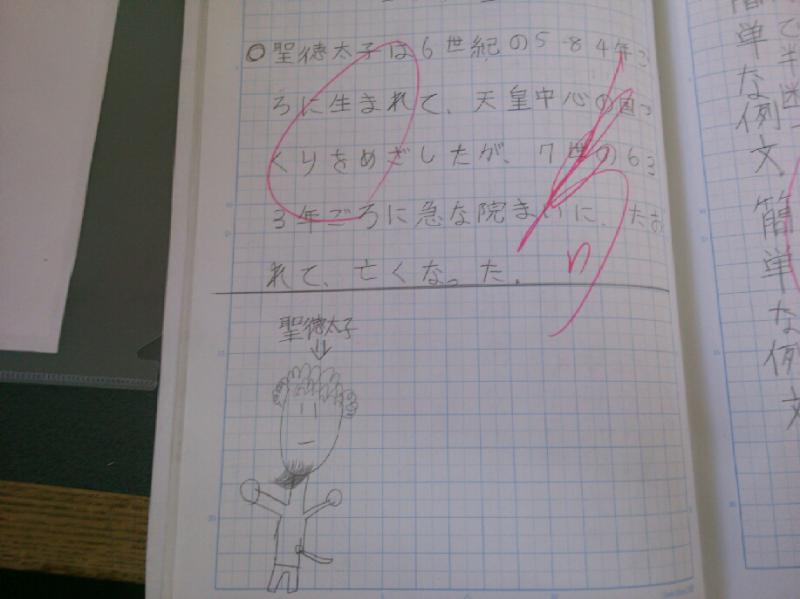 ○聖徳太子は6世紀の584年ご
ろに生まれて、天皇中心の国づ
くりをめざしたが、7世の63
3年ごろに急な院まいに、たお
れて、亡くなった。
聖徳太子
簡単な例文、簡単な例文
て半